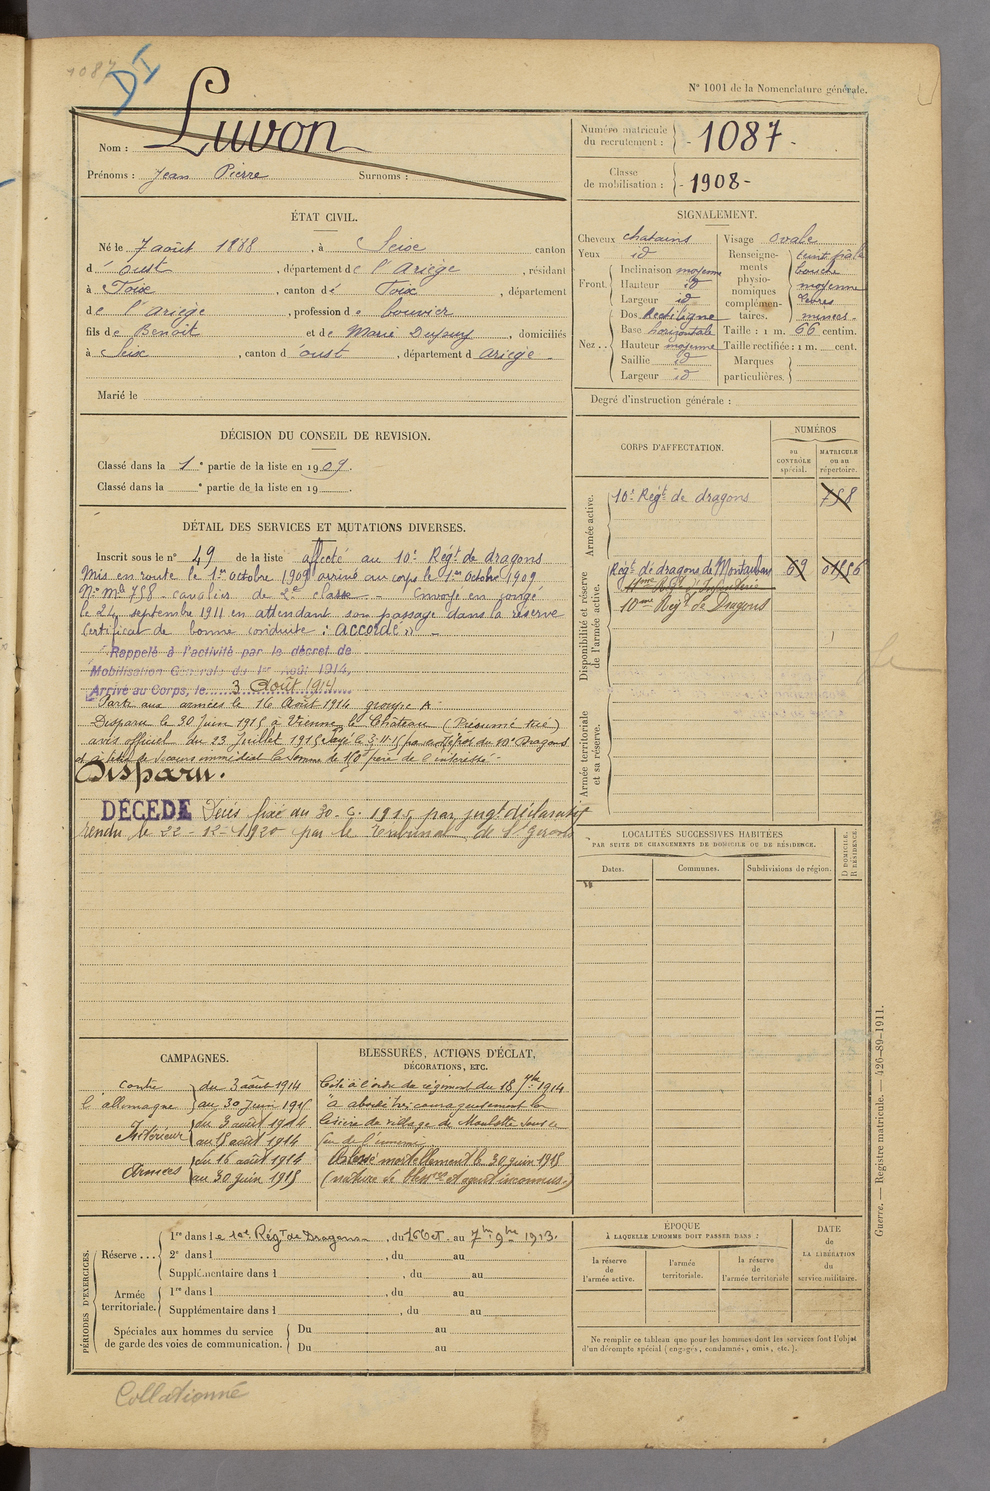 1087
DI
N° 1001 de la Nomenclature générale.
Nom : Luvon
Prénoms : Jean Pierre Surnoms :
Numéro matricule du recrutement : - 1087 -
Classe de mobilisation : - 1908 -
ÉTAT CIVIL.
Né le 7 août 1888, à Seix canton
d'oust, département de l'Ariège, résidant
à Foix, canton de Foix, département
de l'Ariège, profession de bouvier
fils de Benoit et de Marie Dupuy, domiciliés
à Seix, canton d'oust, département d Ariège -
Marié le
SIGNALEMENT.
Cheveux chatains
Yeux id
Front. Inclinaison moyenne
Hauteur id
Largeur id
Nez .. Dos Rectiligne
Base horizontale
Hauteur moyenne
Saillie id
Largeur id
Visage ovale
Renseignements physionomiques complémentaires. teint pâle
bouche
moyenne
lèvres
minces -
Taille : 1 m. 66 centim.
Taille rectifiée : 1 m. cent.
Marques particulières.
Degré d'instruction générale :
DÉCISION DU CONSEIL DE REVISION.
Classé dans la 1e partie de la liste en 1909.
Classé dans la e partie de la liste en 19 .
DÉTAIL DES SERVICES ET MUTATIONS DIVERSES.
Inscrit sous le n° 49 de la liste affecté au 10e Régt de dragons
Mis en route le 1er octobre 1909 arrivé au corps le 1er octobre 1909
N° Mle 758 - cavalier de 2e classe - Envoyé en congé
le 24 septembre 1911 en attendant son passage dans la réserve
Certificat de bonne conduite : "accordé" -
Rappelé à l'activité par le décret de
Mobilisation Générale du 1er Août 1914,
Arrivé au Corps, le 3 Août 1914
Parti aux armées le 16 Août 1914 groupe A
Disparu le 30 Juin 1915 à Vienne le Château (Présumé tué)
avis officiel du 23 Juillet 1915 Payé le 3-11-15 par le Dépôt du Me Dragons
à titre de secours immédiat la somme de 150f père de l'intéressé -
Disparu.
DÉCÉDÉ Décès fixé au 30-6-1915 par jugt déclaratif
rendu le 22-12-1920 par le Tribunal de St Girons
CORPS D'AFFECTATION.
NUMÉROS
au CONTRÔLE spécial.
MATRICULE ou au répertoire.
Armée active.
10e Régt de dragons 758
Disponibilité et réserve de l'armée active.
Régt de dragons de Montauban 69 01556
10ème Régt de Dragons
Armée territoriale et sa réserve.
LOCALITÉS SUCCESSIVES HABITÉES
PAR SUITE DE CHANGEMENTS DE DOMICILE OU DE RÉSIDENCE.
Dates. Communes. Subdivisions de région. D DOMICILE. R RÉSIDENCE.
CAMPAGNES.
contre l'allemagne du 3 août 1914
au 30 Juin 1915
Intérieur du 3 août 1914
au 15 août 1914
Armées du 16 août 1914
au 30 juin 1915
BLESSURES, ACTIONS D'ÉCLAT,
DÉCORATIONS, ETC.
Cité à l'ordre du régiment du 18 7bre 1914
"a abordé très courageusement la
lisière du village de Moulotte sous le
feu de l'ennemi
Blessé mortellement le 30 juin 1915
(nature de blessure et agent inconnus)
PÉRIODES D'EXERCICES.
Réserve ... 1re dans le 10e Régt de Dragons, du 16 Oct. au 7 9bre 1913.
2e dans l , du au
Supplémentaire dans l , du au
Armée territoriale. 1re dans l , du au
Supplémentaire dans l , du au
Spéciales aux hommes du service de garde des voies de communication. Du au
Du au
ÉPOQUE
À LAQUELLE L'HOMME DOIT PASSER DANS :
la réserve de l'armée active. l'armée territoriale. la réserve de l'armée territoriale
DATE de LA LIBÉRATION du service militaire.
Ne remplir ce tableau que pour les hommes dont les services font l'objet
d'un décompte spécial (engagés, condamnés, omis, etc.).
Guerre. — Registre matricule. — 426-89-1911.
Collationné